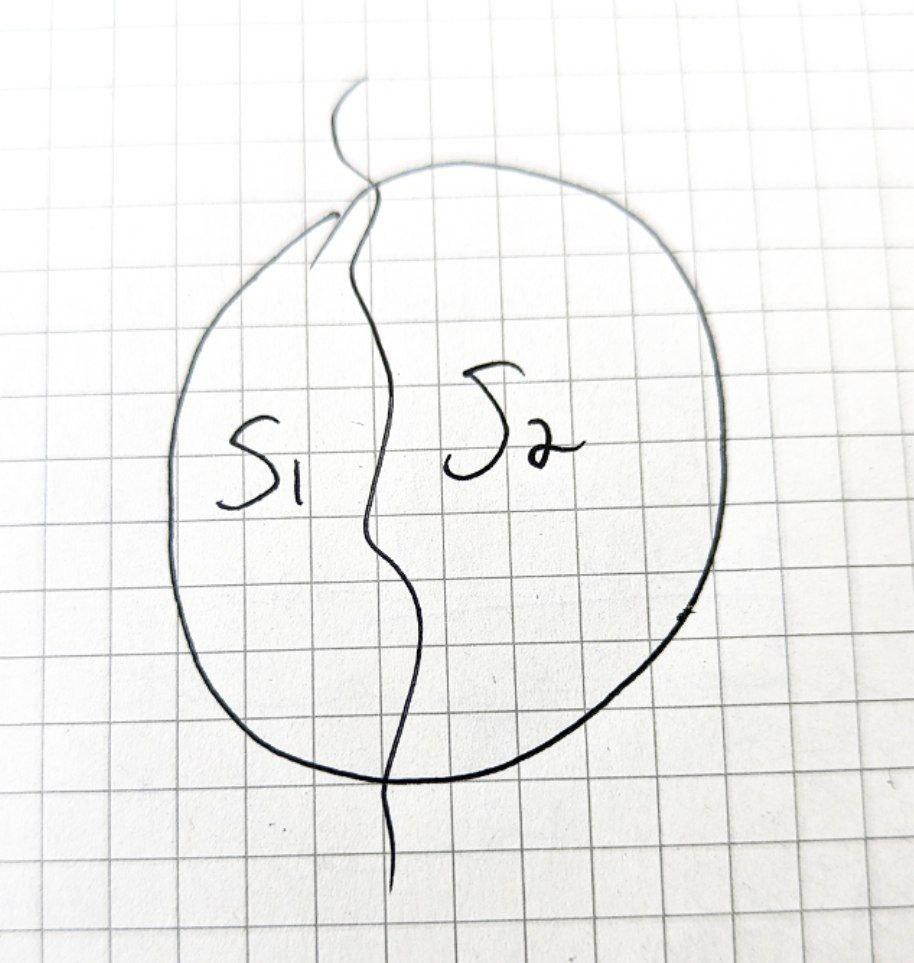 S1 S2